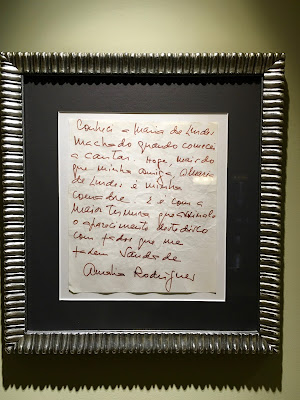 Conheci a Maria de Lurdes
Machado quando comecei
a cantar. Hoje, mais do
que minha amiga, a Maria
de Lurdes é minha
comadre. E é com a
maior ternura que assinalo
o aparecimento deste disco
com fados que me
fazem saudade
Amália Rodrigues